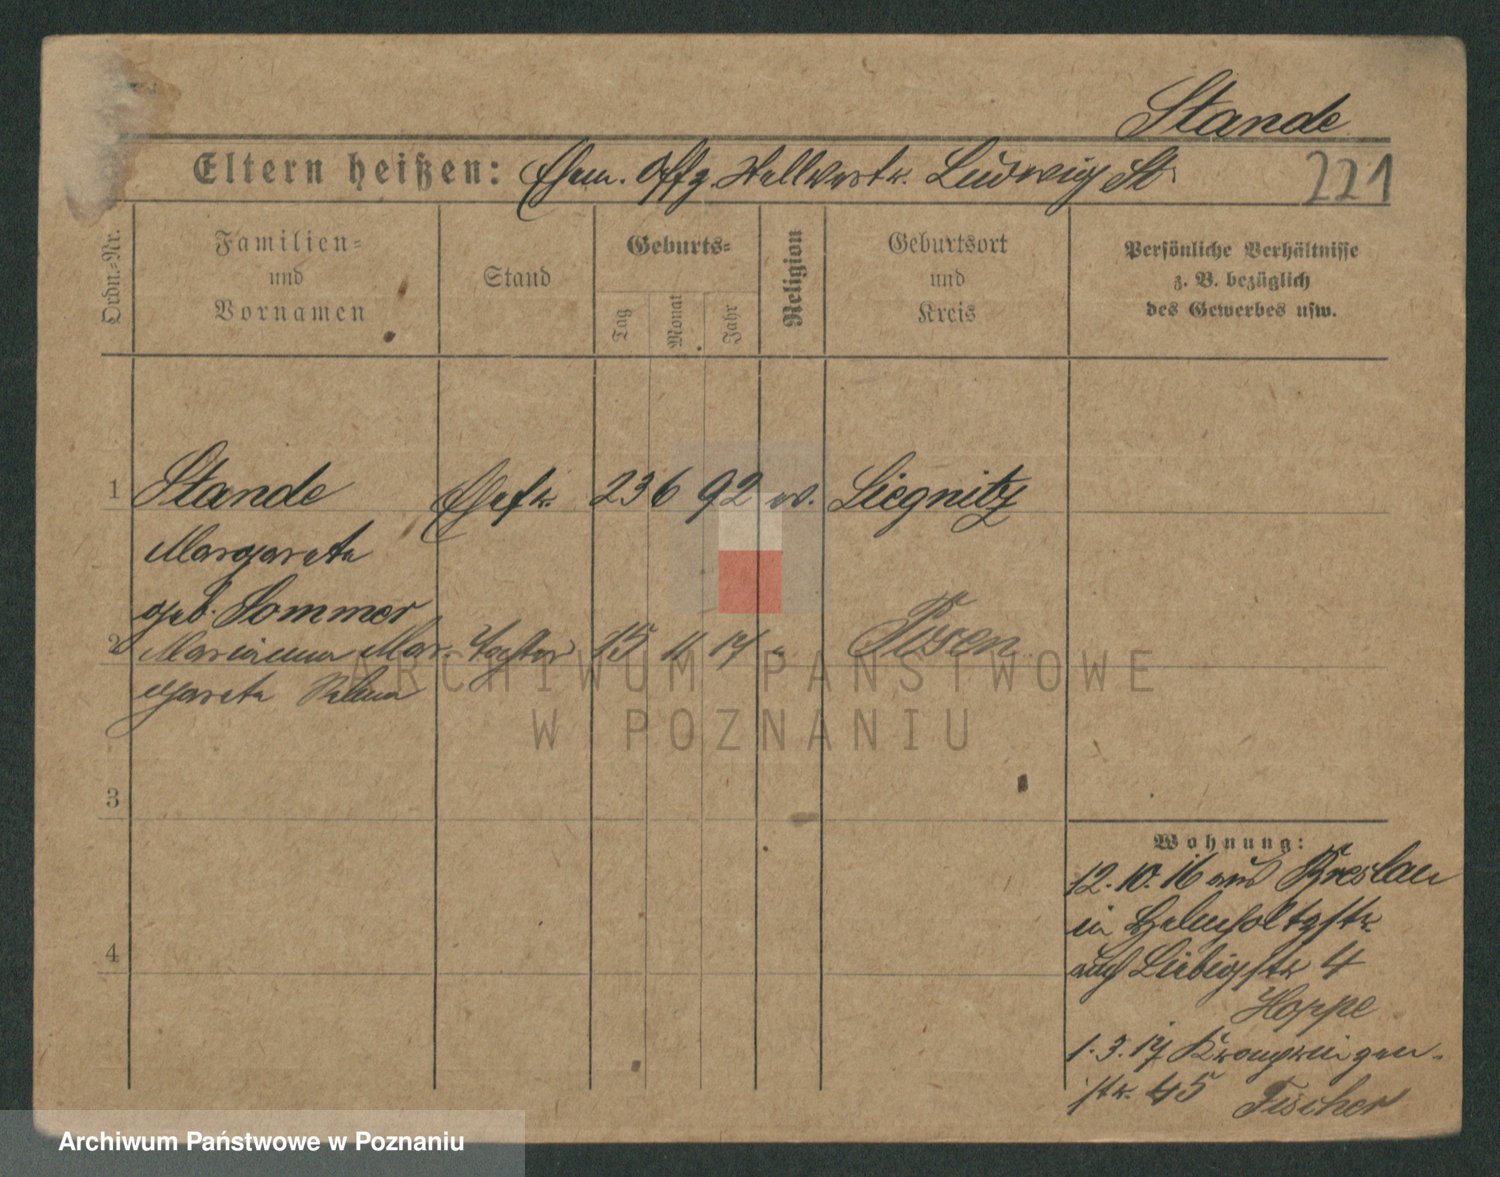 Stande
Eltern heißen: Ehem. Offz. Stellvertr. Ludwig St.
221
Ordn.-Nr.
Familien-
und
Vornamen
Stand
Geburts-
Tag
Monat
Jahr
Religion
Geburtsort
und
Kreis
Persönliche Verhältnisse
z. B. bezüglich
des Gewerbes usw.
1 Stande Ehefr. 23 6 92 ev. Liegnitz
Margarete
geb. Sommer
2 Marianna Mar- Tochter 15 11 17 " Posen
gareta
3
4
Wohnung:
12.10.16 aus Breslau
in Helmholtzstr
auch Liebigstr 4
Hoppe
1.3.17 Kronprinzen-
str. 45 Fischer
ARCHIWUM PAŃSTWOWE
W POZNANIU
Archiwum Państwowe w Poznaniu